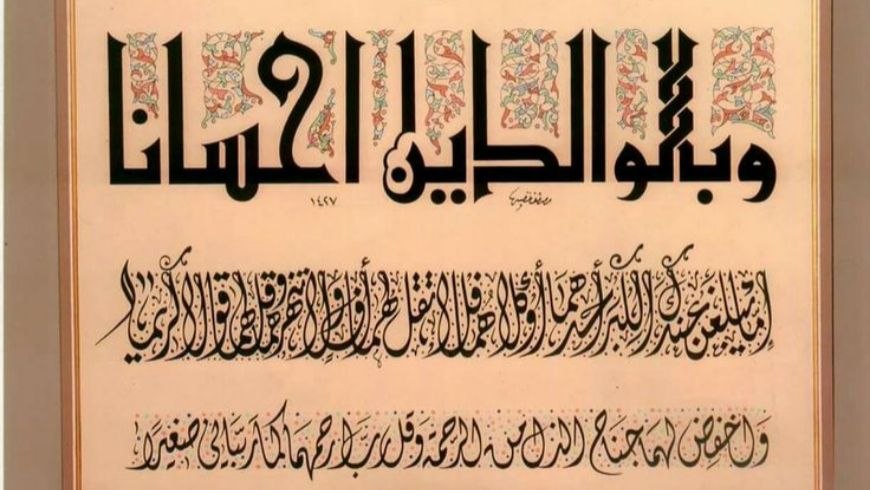 وبالوالدين احسانا
١٤٢٧
إما يبلغن عندك الكبر أحدهما أو كلاهما فلا تقل لهما أف ولا تنهرهما وقل لهما قولا كريما
واخفض لهما جناح الذل من الرحمة وقل رب ارحمهما كما ربياني صغيرا